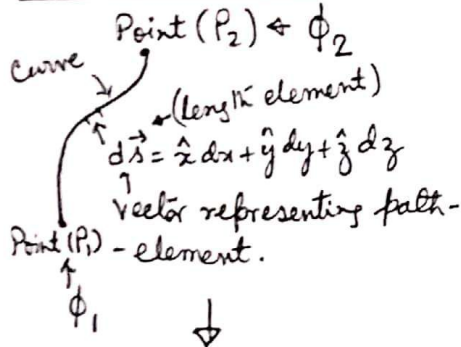 Point (P₂) ← ϕ₂
Curve
(length element)
ds⃗ = x̂ dx + ŷ dy + ẑ dz
vector representing path-
Point (P₁) - element.
ϕ₁